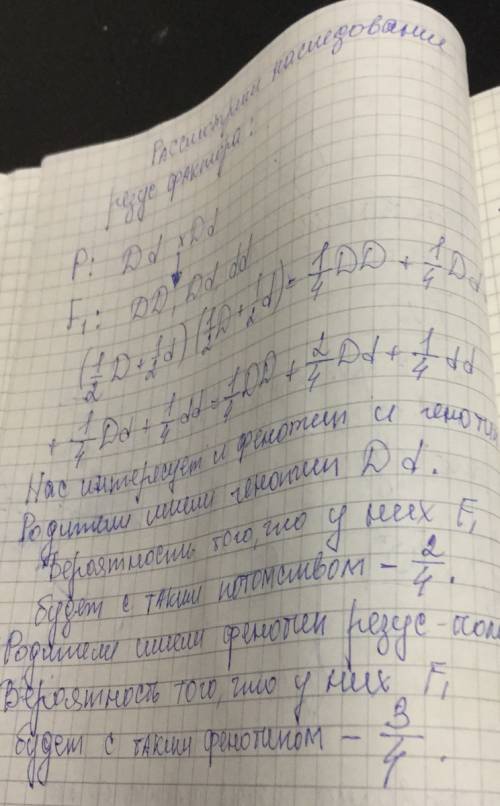 Рассмотрим наследование
резус фактора:
P: Dd x Dd
F₁: DD, Dd dd
(1/2 D + 1/2 d) (1/2 D + 1/2 d) = 1/4 DD + 1/4 Dd
+ 1/4 Dd + 1/4 dd = 1/4 DD + 2/4 Dd + 1/4 dd
Нас интересует и фенотип и геноти
Родители имели генотип Dd.
Вероятность того, что у них F₁
будет с таким потомством – 2/4.
Родители имели фенотип резус-пол
Вероятность того, что у них F₁
будет с таким фенотипом – 3/4.